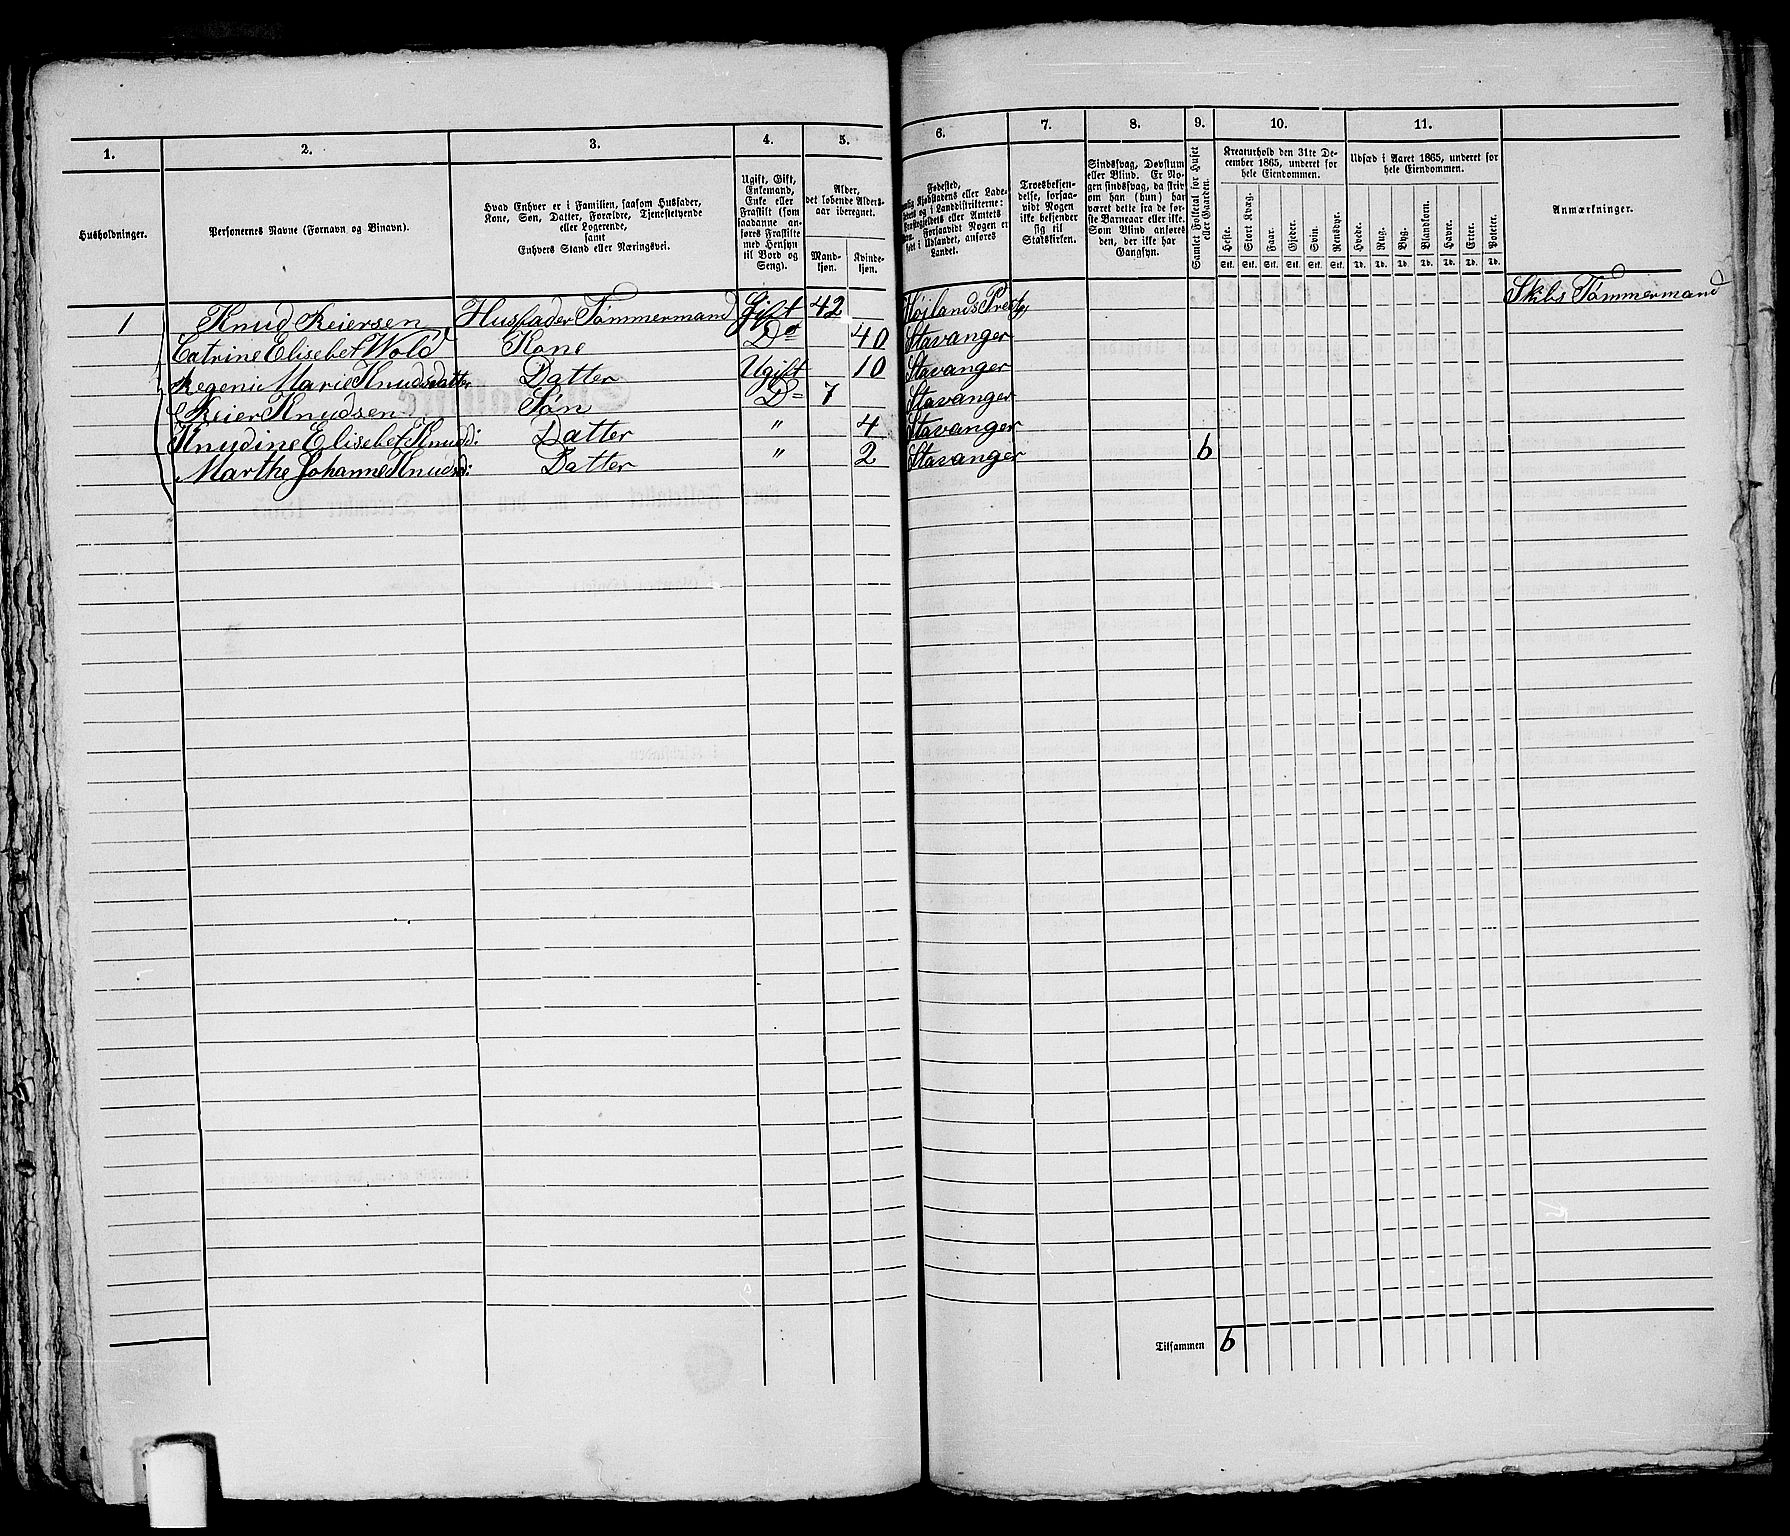 1. 2. 3. 4. 5. 6. 7. 8. 9. 10. 11.
Husholdninger.
Personernes Navne (Fornavn og Binavn).
Hvad Enhver er i Familien, saasom Husfader,
Kone, Søn, Datter, Forældre, Tjenestetyende
eller Logerende,
samt
Enhvers Stand eller Næringsvei.
Ugift, Gift,
Enkemand,
Enke eller
Fraskilt (som
saadanne an-
føres Fraskilte
med Hensyn
til Bord og
Seng).
Alder,
det løbende Alders-
aar iberegnet.
Mand-
kjøn.
Kvinde-
kjøn.
Fødested,
Kjøbstadens eller Lade-
og i Landdistrikterne:
eller Amtets
Forsaavidt Nogen er
født i Udlandet, anføres
Landet.
Troesbekjen-
delse, forsaa-
vidt Nogen
ikke bekjender
sig til
Statskirken.
Sindssvag, Døvstum
eller Blind. Er No-
gen sindssvag, da skriv
om han (hun) har
været dette fra de før-
ste Barneaar eller ikke.
Som Blind anføres
den, der ikke har
Gangsyn.
Samlet Folketal for Huset
eller Gaarden.
Kreaturhold den 31te De-
cember 1865, underet for
hele Eiendommen.
Heste. Stort Kvæg. Faar. Gjeder. Svin. Rensdyr.
Stk. Stk. Stk. Stk. Stk. Stk.
Udsæd i Aaret 1865, underet for
hele Eiendommen.
Hvede. Rug. Byg. Blandkorn. Havre. Erter. Poteter.
Td. Td. Td. Td. Td. Td. Td.
Anmærkninger.
1 Knud Reiersen Husfader Tømmermand Gift 42 Højlands Prestg Skibs Tømmermand
Catrine Elisebet Wold Kone Do 40 Stavanger
Regeni Marie Knudsdatter Datter Ugift 10 Stavanger
Reier Knudsen Søn D= 7 Stavanger
Knudine Elisebet Knudd: Datter " 4 Stavanger
Marthe Johanne Knudsd: Datter " 2 Stavanger 6
Tilsammen 6